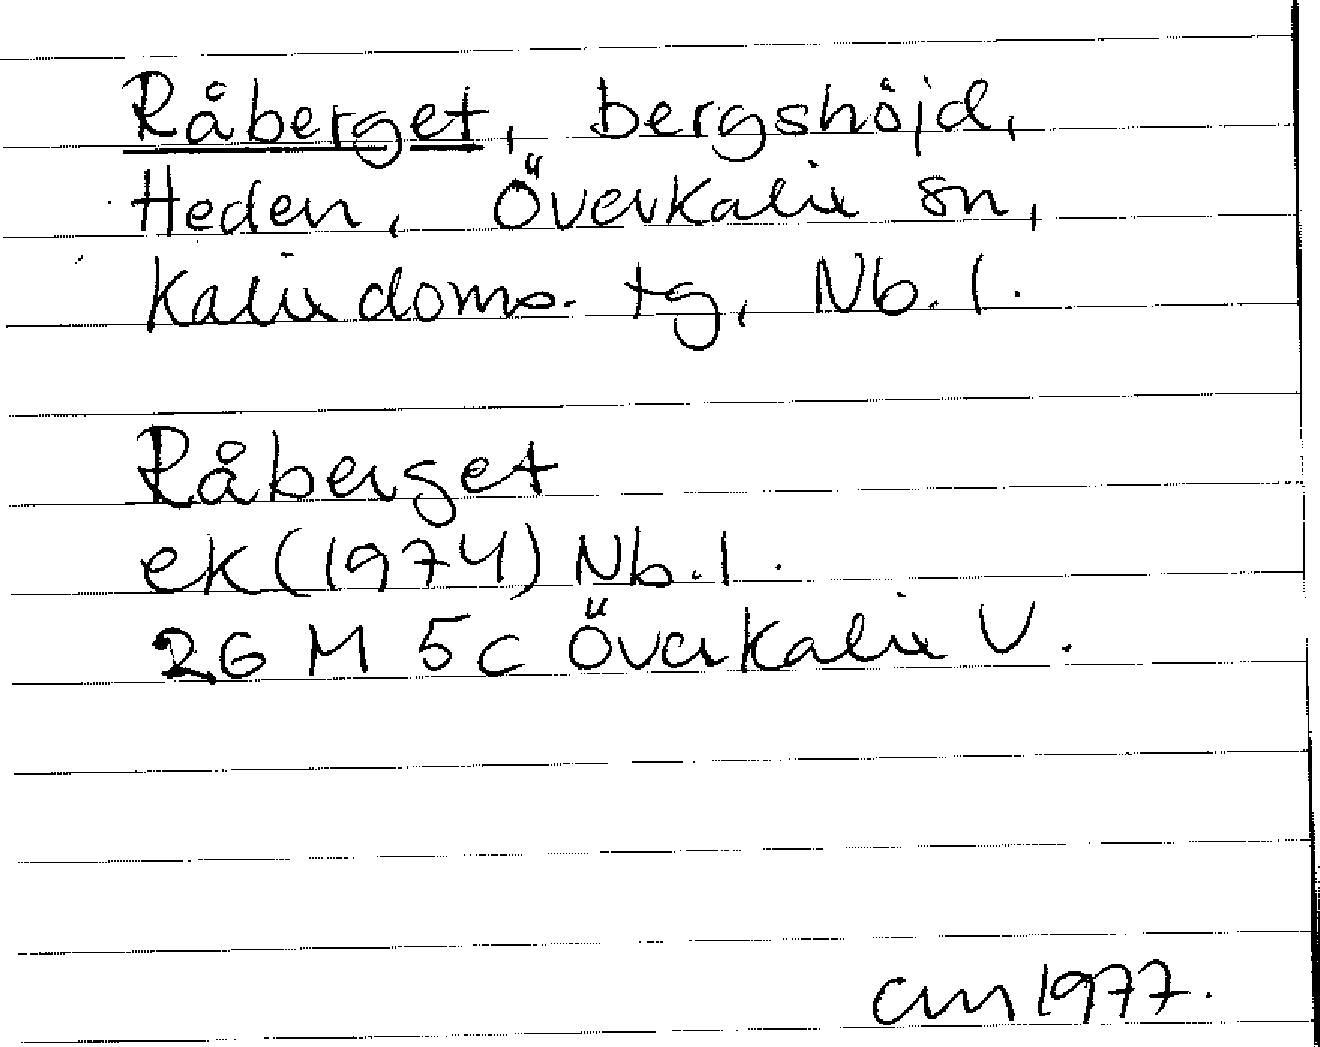 Råberget, bergshöjd,
Heden, Överkalix sn,
Kalix doms. tg, Nb. l.
Råberget
ek (1974) Nb. l.
26 M 5c Överkalix V.
cm 1977.